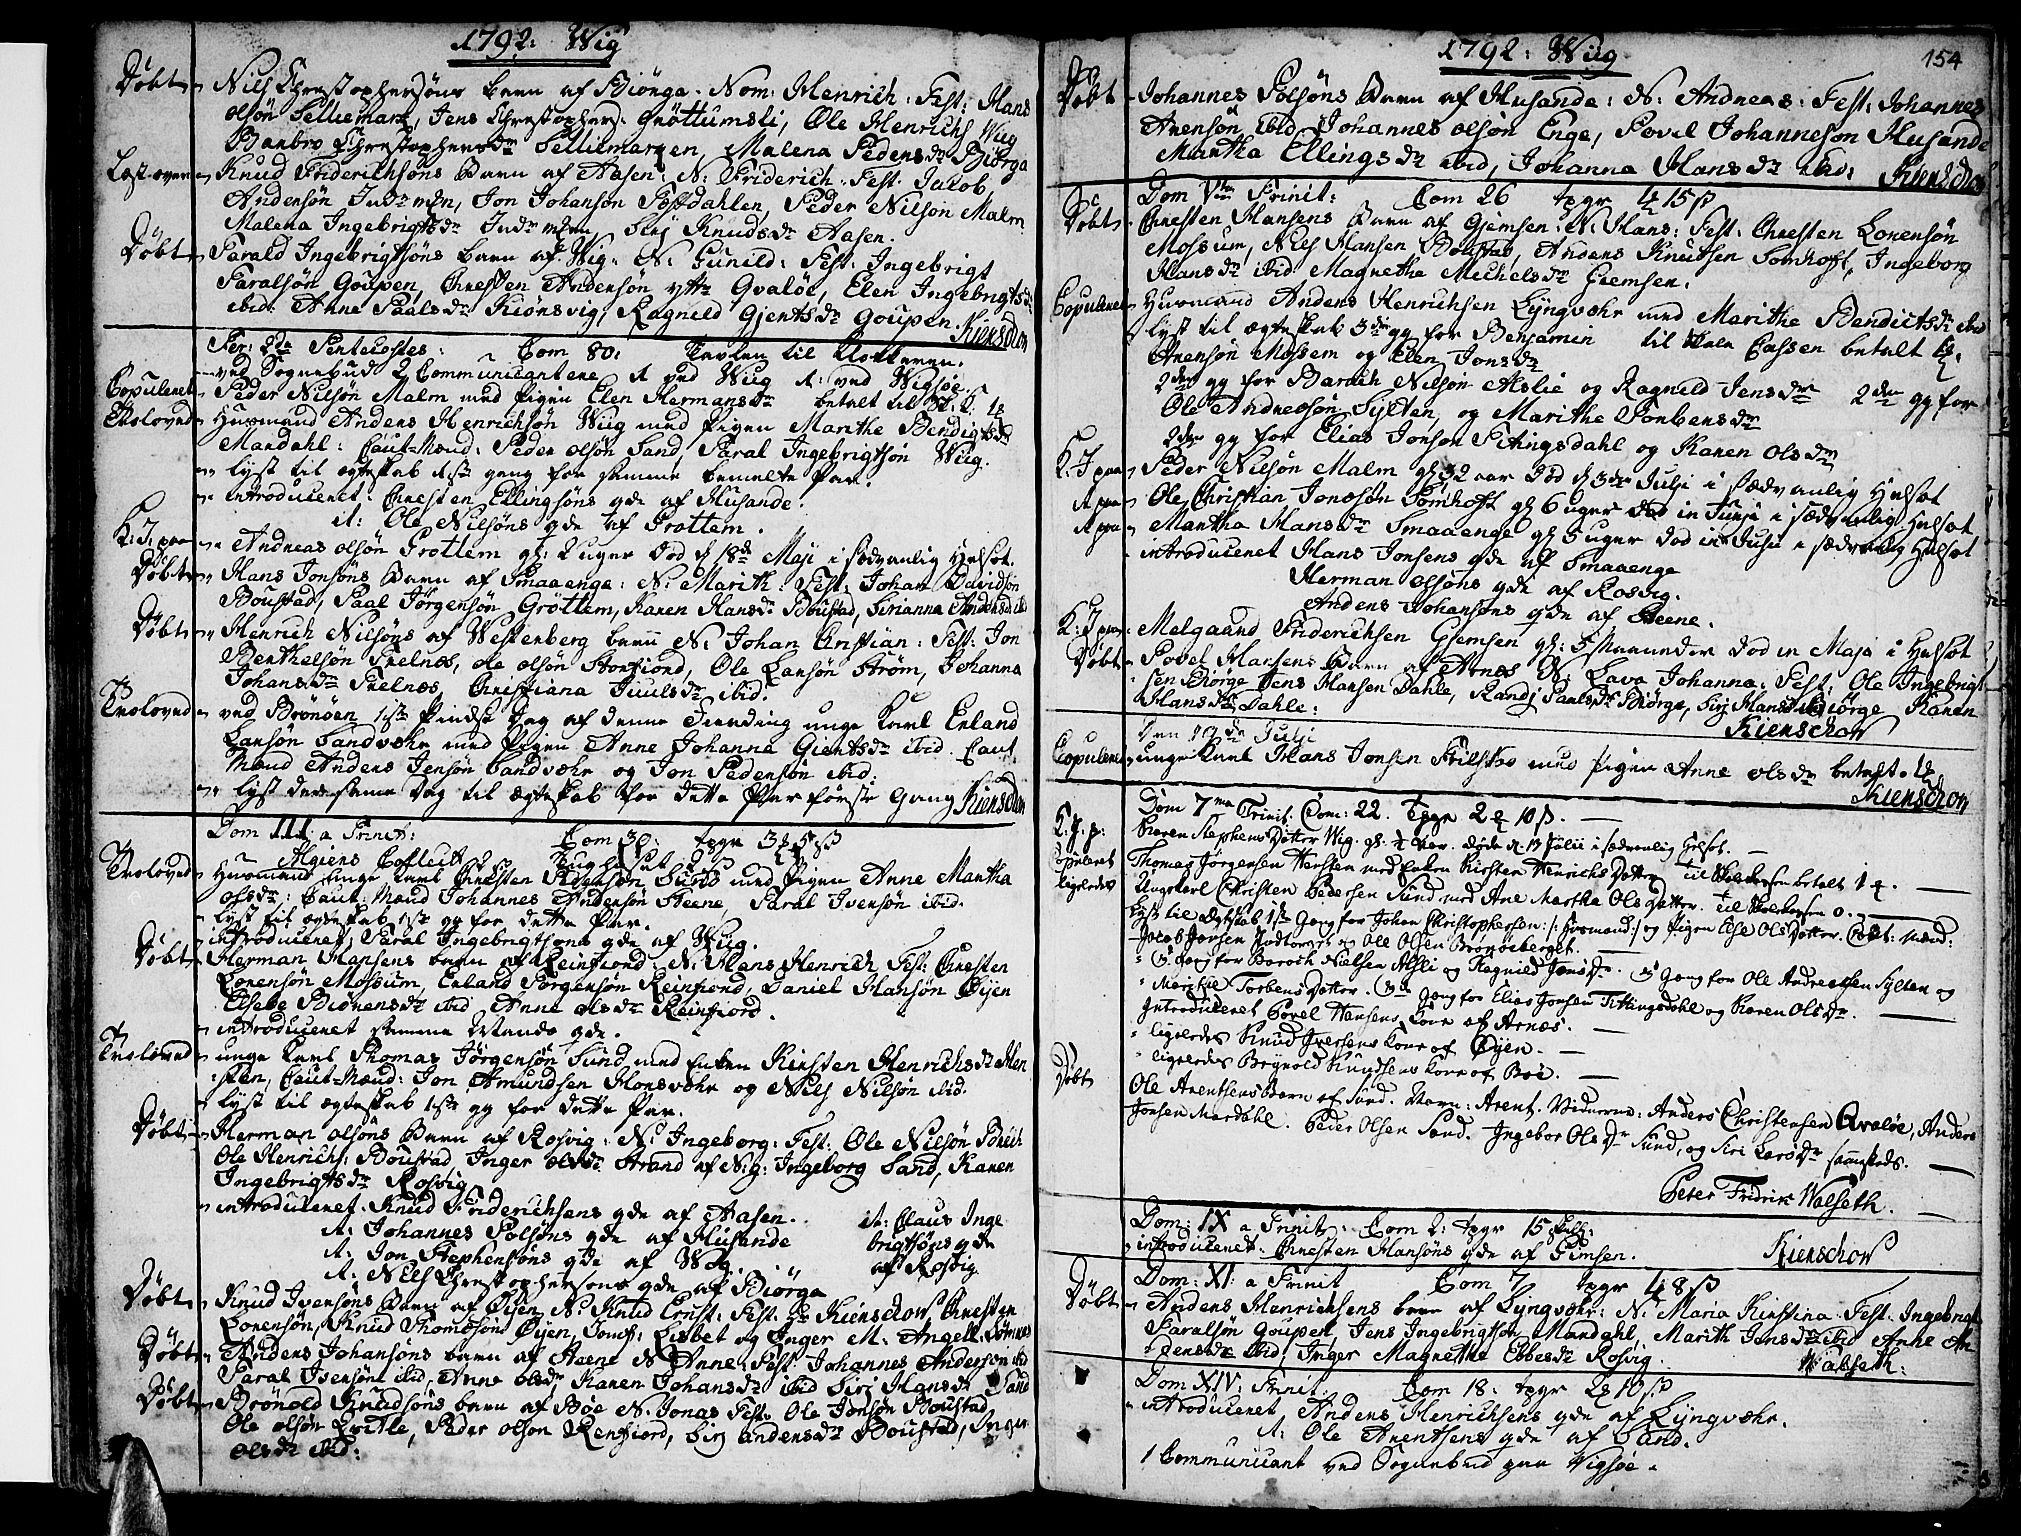 1792: Wiig
Døbt Niels Christophersøns Barn af Biørga. Nom: Henrich: Test: Hans
olsøn Selliemark, Jens Christophers: Grøttumsli, Ole Henrichs Wiig
Barbro Christophersdr Selliemarken, Malena Pedersdr Biørga
Læst over Knud Friderichsøns Barn af Aasen: N: Friderich: Test: Jacob
Andersøn, Jon Johansøn, Peder Nilsøn Malm
Malena Ingebrigtsdr, Siri Knudsdr Aasen.
Døbt Tarald Ingebrigtsøns barn af Wiig. N: Gunild: Test: Ingebrigt
Taralsøn Goupen, Christen Andersøn yttr Qvaløe, Elen Ingebrigtsdr
ibid: Anne Paalsdr Kiønsvig, Ragnild Gjertsdr Goupen. Kierschow
Fer: 2da Pentecostes: Com 80: Tavlen til Klokkeren.
ved Sognebud 2 Communicantere 1 ved Wiig 1: ved Wigsøe.
Copuleret Peder Nilsøn Malm med Pigen Elen Hermansdr betalt til
Troloved Huusmand Anders Henrichsøn Wiig med Pigen Marithe Bendigtsdr
Mardahl: Caut-Mænd: Peder olsøn Sand, Taral Ingebrigtsøn Wiig.
lyst til ægteskab 1ste gang for samme bemelte Par.
introduceret: Christen Ellingsøns qde af Husande.
it: Ole Nilsøns qde af Grottem.
K: J: paa Andreas olsøn Grottem gl: 2 uger død d 18de Maji i sædvanlig Helsot.
Døbt Hans Jonsøns Barn af Smaaenge: N: Marith: Test: Johan Davidsøn
Boustad, Paal Jørgensøn Grøttem, Karen Hansdr Boustad, Sirianna Andersdr ibid
Døbt Henrich Nilsøns af Westerberg barn N: Johan Christian: Test: Jon
Berthelsøn Trelnæs, ole olsøn Storfiord, Ole Larsøn Strøm, Johanna
Johansdr Trelnæs, Christiana Juulsdr ibid:
Troloved ved Brønøen 1ste Pindse Dag af denne Fierding unge Karl Erland
Larsøn Sandvæhr med Pigen Anne Johanna Giertsdr ibid. Caut
Mænd Anders Jensøn Sandvæhr og Jon Pedersøn ibid:
lyst den samme dag til ægteskab for dette Par første Gang Kierschow
Dom III: a Trinit: Com 30: tvgr 3 5 ß
Troloved Huusmand unge Karl Christen Pedersøn Sund med Pigen Anne Martha
olsdr: Caut: Mænd Johannes Andersøn Steene, Taral Iversøn ibid.
lyst til ægteskab 1ste gg for dette Par.
introduceret, Taral Ingebrigtsøns qde af Wiig.
Døbt Herman Hansens barn af Reinfiord: N: Hans Henrich Test: Christen
Lorensøn Mossum, Erland Jørgensøn Reinfiord, Daniel Hansøn Øijen
Elsebe Biørensdr ibid Anne olsdr Reinfiord.
introduceret samme Mands qde.
Troloved unge Karl Thomas Jørgensøn Sund med Enken Kirsten Henrichsdr Her
sten, Caut-Mænd: Jon Amundsen Horsvæhr og Niels Nilsøn ibid.
lyst til ægteskab 1ste gg for dette Par.
Døbt Herman olsøns Barn af Rosvig: N: Ingeborg: Test: Ole Nilsøn
Ole Henrichs: Boustad Inger olsdr Strand af N:g: Ingeborg Sand, Karen
Ingebrigtsdr Rosvig
introduceret. Knud Friderichsens qde af Aasen. it: Claus Inge
it: Johannes Polsøns qde af Husande brigtsøns qde
it: Jon Stephensøns qde af Wiig. af Rosvig
it: Niels Christophersøns qde af Biørga
Døbt Knud Iversøns Barn af Øijen, N: Knud Ernst: Test: Hr Kierschow Christen
Lorensøn, Knud Thomæsøn Øijen, Jomf: Lisbet og Inger M: Angell Sømnes
Døbt Anders Johansøns barn af Steene N: Anne: Test: Johannes Andersøn ibid
Taral Iversøn ibid, Anne olsdr, Karen Johansdr ibid Siri Hansdr Sand
Døbt Brønold Knudsøns barn af Bøe N: Jonas Test: Ole Jonsøn Boustad,
Ole olsøn, Peder olsøn Renfiord, Siri Andersdr Boustad, Inger
olsdr ibid:
1792: Wiig 154
Døbt Johannes Polsøns Barn af Husande: N: Andreas: Test: Johannes
Arensøn ibid Johannes olsøn Enge, Povel Johannesøn Husande
Martha Ellingsdr ibid, Johanna Hansdr ibid: Kierschow
Dom Vta Trinit: Com 26 tvgr 4 15 ß
Døbt Christen Hansens Barn af Gjemsen: N: Hans: Test: Christen Lorensøn
Mossum, Niels Hansen Boustad, Anders Knutsen Somhoft, Ingeborg
Hansdr ibid Magrethe Michelsdr Geemsen.
Copuleret Huusmand Anders Henrichsen Lyngvæhr med Marithe Bendictsdr ibid
lyst til ægteskab 3de gg for Benjamin til Cassen betalt
Arensøn Mossem og Elen Jonsdr
2den gg for Baroch Nilsøn Aslie og Ragnild Jensdr 2den gg for
Ole Andreasøn Sylten, og Marithe Torbersdr
2den gg for Elias Jonsøn Titingsdahl og Karen olsdr
K: J paa Peder Nilsøn Malm gl 32 aar død d 3de Julji i sædvanlig Helsot
it paa Ole Christian Jonæsøn Somhoft gl 6 uger død in Junji i sædvanlig Helsot
it paa Martha Hansdr Smaaenge gl 5 uger død in Juni i sædvanlig Helsot
introduceret Hans Jonsens qde af Smaaenge
Herman olsøns qde af Rosvig.
Anders Johansøns qde af Steene.
K: J paa Melgaard Friderichsen Gjemsen gl: 5 Maaneder død in Maja i Helsot
Døbt Povel Hansens Barn af Arnes N: Lava Johanna: Test: Ole Ingebrigt
sen Biørge Jens Hansen Dahle, Randj Paalsdr Biørge, Siri Hansdr Biørge Karen
Hansdr Dahle: Kierschow
Den 19de Julji
Copuleret unge Karl Hans Jonsen med Pigen Anne olsdr betalt.
Kierschow
Dom 7ma Trinit. Com: 22. Tvgr 2 10 ß.
K. J. p: Karen Stephens Datter Wig. gl: ½ Aar. døde d: 13 Julii i sædvanlig Helsot.
Copuleret Thomas Jørgensen Hersten med Enken Kirsten Henrichs Datter betalt 1.
ligeledes Ungekarl Christen Pedersen Sund med Ane Martha Ols Datter. til 0.
Lyst til Ægteskab 1ste Gang for Johan Christophersen /: Huusmand :/ og Pigen Else Ols Datter. Caut: Mænd:
Jacob Jonsen og Ole Olsen Brønøeberget.
Gang for Baroch Nielsen Asli og Ragnild Jonsdr. Gang for Ole Andreasen Sylten og
Marithe Torbens Datter. 3de Gang for Elias Jonsen Titingsdahl og Karen Olsdr.
Introduceret Povel Hansens Kone af Arnæs.
ligeledes Knud Iversens Kone af Øijen.
ligeledes Brynold Knudsens Kone af Bøe.
Døbt Ole Arentsens Barn af Sund. Navn: Arent. Vidnerne: Anders Christensen Qvaløe, Anders
Jonsen Mardahl. Peder Olsen Sand. Ingebor Olsdr Sund, og Siri Larsdr sammesteds.
Peter Fridrik Walseth.
Dom: IX a Trinit: Com 2: tvgr 15 skill
introduceret: Christen Hansøns qde af Gimsen. Kierschow
Dom: XI: a Trinit Com 7 tvgr 4 8 ß
Døbt Anders Henrichsens barn af Lyngvæhr: N: Maria Kirstina. Test: Ingebrigt
Taralsøn Goupen, Jens Ingebrigtsøn Mardahl, Marith Jonsdr ibid Anne An
dersdr ibid, Inger Magrethe Ebbesdr Rosvig. Walseth:
Dom XIV: Trinit. Com 18: tvgr 2 10 ß
introduceret Anders Henrichsens qde af Lyngvæhr.
it: Ole Arentsens qde af Sand.
1 Communicant ved Sognebud paa Wigsøe.